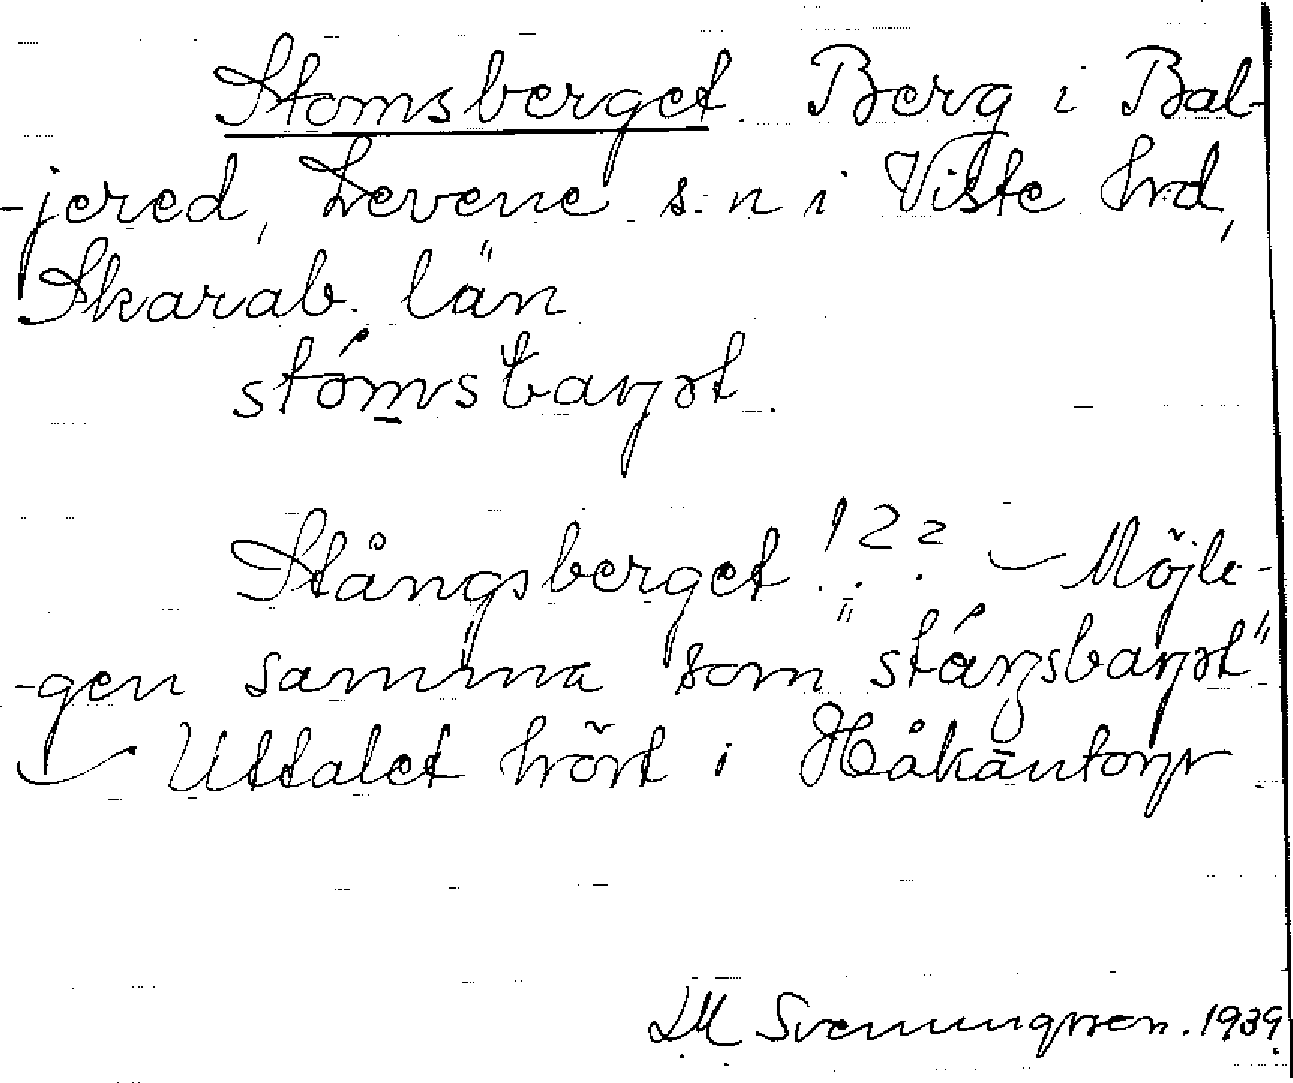 Stomsberget. Berg i Bal-
-jered, Levene s:n i Viste hrd,
Skarab. län
stómsbarjət.
Stångsberget !?? — Möjli-
-gen samma som "stáŋsbarjət"
— Uttalet hört i Håkantorp
LM Svenungsson. 1939.